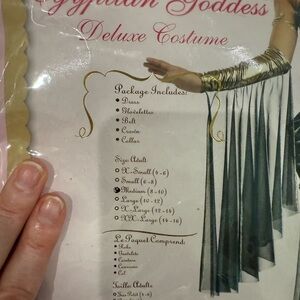 Egyptian Goddess
Deluxe Costume
Package Includes:
• Dress
• Belt
• Crown
• Collar
Size: Adult
X-Small (4-6)
Small (6-8)
Medium (8-10)
Large (10-12)
X-Large (12-14)
XX-Large (14-16)
Le Paquet Comprend:
• Robe
• Ceinture
• Couronne
• Col
Taille Adulte